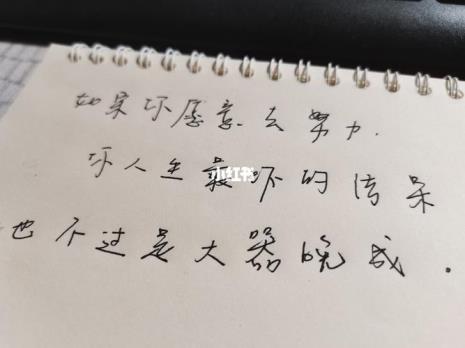 如果你愿意去努力.
你人生最坏的结果
小红书
也不过是大器晚成.